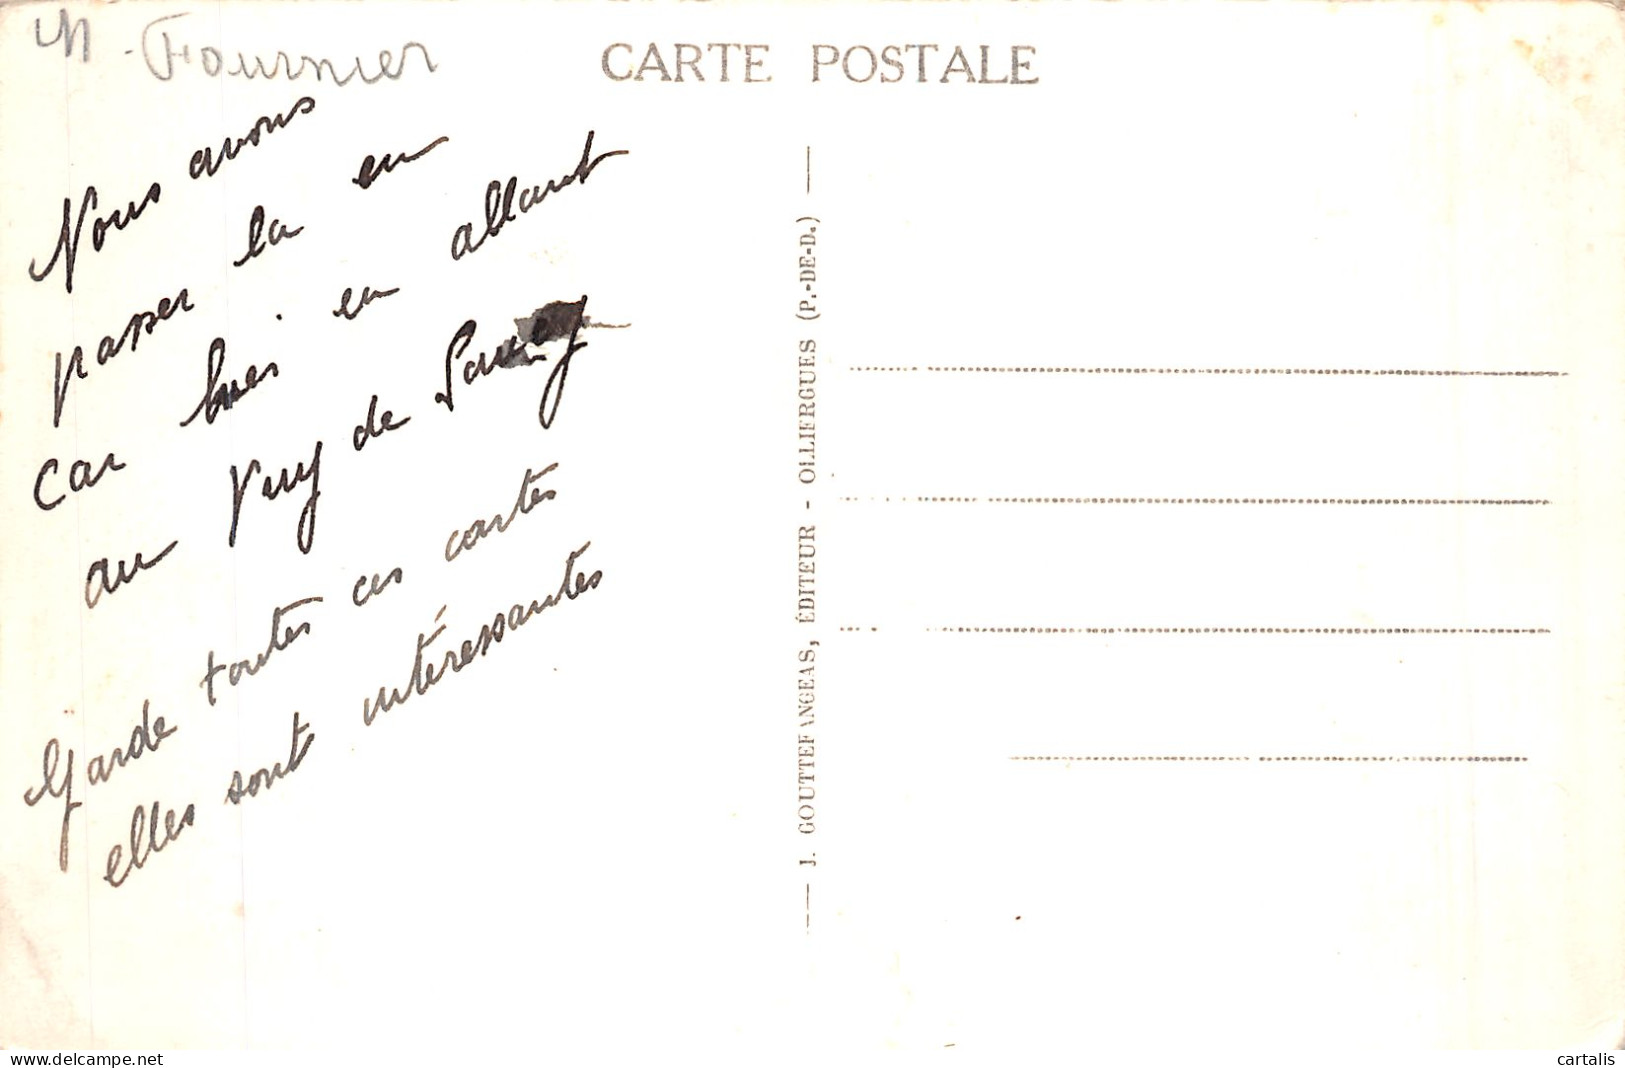 M. Fournier
CARTE POSTALE
Nous avons
passer la en
car hier en allant
au Puy de Sancy
Garde toutes ces cartes
elles sont intéressantes
J. GOUTTEFANGEAS, ÉDITEUR - OLLIERGUES (P.-DE-D.)
www.delcampe.net
cartalis